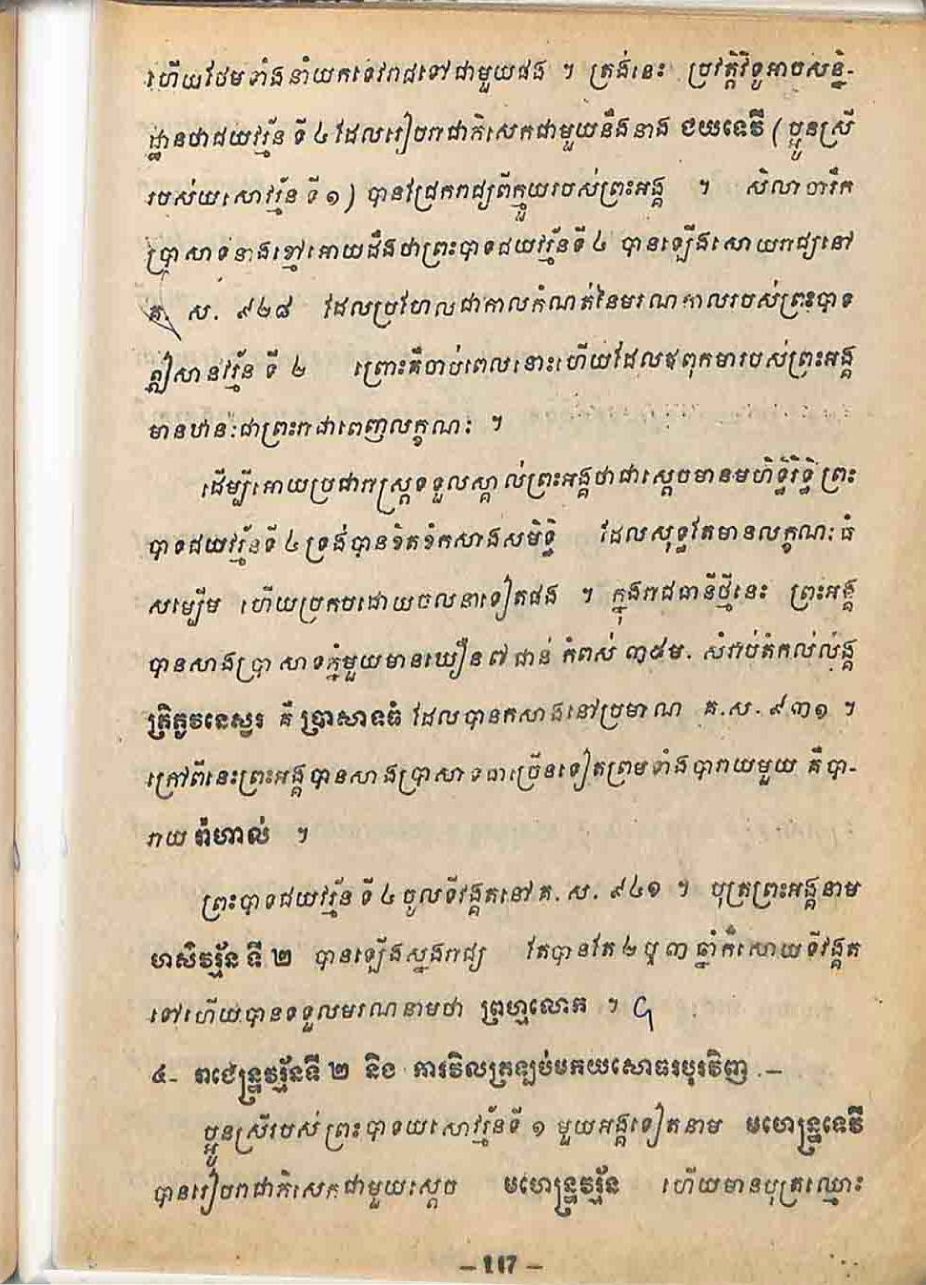 ហើយថែមទាំងនាំយកទេវរាជទៅជាមួយផង ។ ត្រង់នេះ ប្រវត្តិវិទូអាចសន្និ-
ដ្ឋានថាជយវរ្ម័ន ទី ៤ ដែលរៀបរាជាភិសេកជាមួយនឹងនាង ជយទេវី ( ប្អូនស្រី
របស់យសោវរ្ម័ន ទី ១ ) បានជ្រែករាជ្យពីក្មួយរបស់ព្រះអង្គ ។ សិលាចារឹក
ប្រាសាទនាងខ្មៅអោយដឹងថាព្រះបាទជយវរ្ម័នទី ៤ បានឡើងសោយរាជ្យនៅ
គ. ស. ៩២៨ ដែលប្រហែលជាកាលកំណត់នៃមរណកាលរបស់ព្រះបាទ
ឦសានវរ្ម័ន ទី ២ ព្រោះគឺចាប់ពេលនោះហើយដែលឪពុកមារបស់ព្រះអង្គ
មានឋានៈជាព្រះរាជាពេញលក្ខណៈ ។
ដើម្បីអោយប្រជារាស្ត្រទទួលស្គាល់ព្រះអង្គថាជាស្តេចមានមហិទ្ធិរឹទ្ធិ ព្រះ
បាទជយវរ្ម័នទី ៤ ទ្រង់បានខិតខំកសាងសមិទ្ធិ ដែលសុទ្ធតែមានលក្ខណៈធំ
សម្បើម ហើយប្រកបដោយចលនាទៀតផង ។ ក្នុងរាជធានីថ្មីនេះ ព្រះអង្គ
បានសាងប្រាសាទភ្នំមួយមានឃឿន ៧ ជាន់ កំពស់ ៣៥ម. សំរាប់តំកល់លិង្គ
ត្រិភូវនេស្វរ គឺ ប្រាសាទធំ ដែលបានកសាងនៅប្រមាណ គ.ស. ៩៣១ ។
ក្រៅពីនេះព្រះអង្គបានសាងប្រាសាទជាច្រើនទៀតព្រមទាំងបារាយមួយ គឺបា-
រាយ រ៉ាហាល់ ។
ព្រះបាទជយវរ្ម័ន ទី ៤ ចូលទីវង្គតនៅ គ. ស. ៩៤១ ។ បុត្រព្រះអង្គនាម
ហសិវរ្ម័ន ទី ២ បានឡើងស្នងរាជ្យ តែបានតែ ២ ឬ ៣ ឆ្នាំក៏សោយទីវង្គត
ទៅហើយបានទទួលមរណនាមថា ព្រហ្មលោក ។
៤- រាជេន្ទ្រវរ្ម័នទី ២ និង ការវិលត្រឡប់មកយសោធរបុរវិញ .–
ប្អូនស្រីរបស់ ព្រះបាទយសោវរ្ម័នទី ១ មួយអង្គទៀតនាម មហេន្ទ្រទេវី
បានរៀបរាជាភិសេកជាមួយស្តេច មហេន្ទ្រវរ្ម័ន ហើយមានបុត្រឈ្មោះ
– 117 –